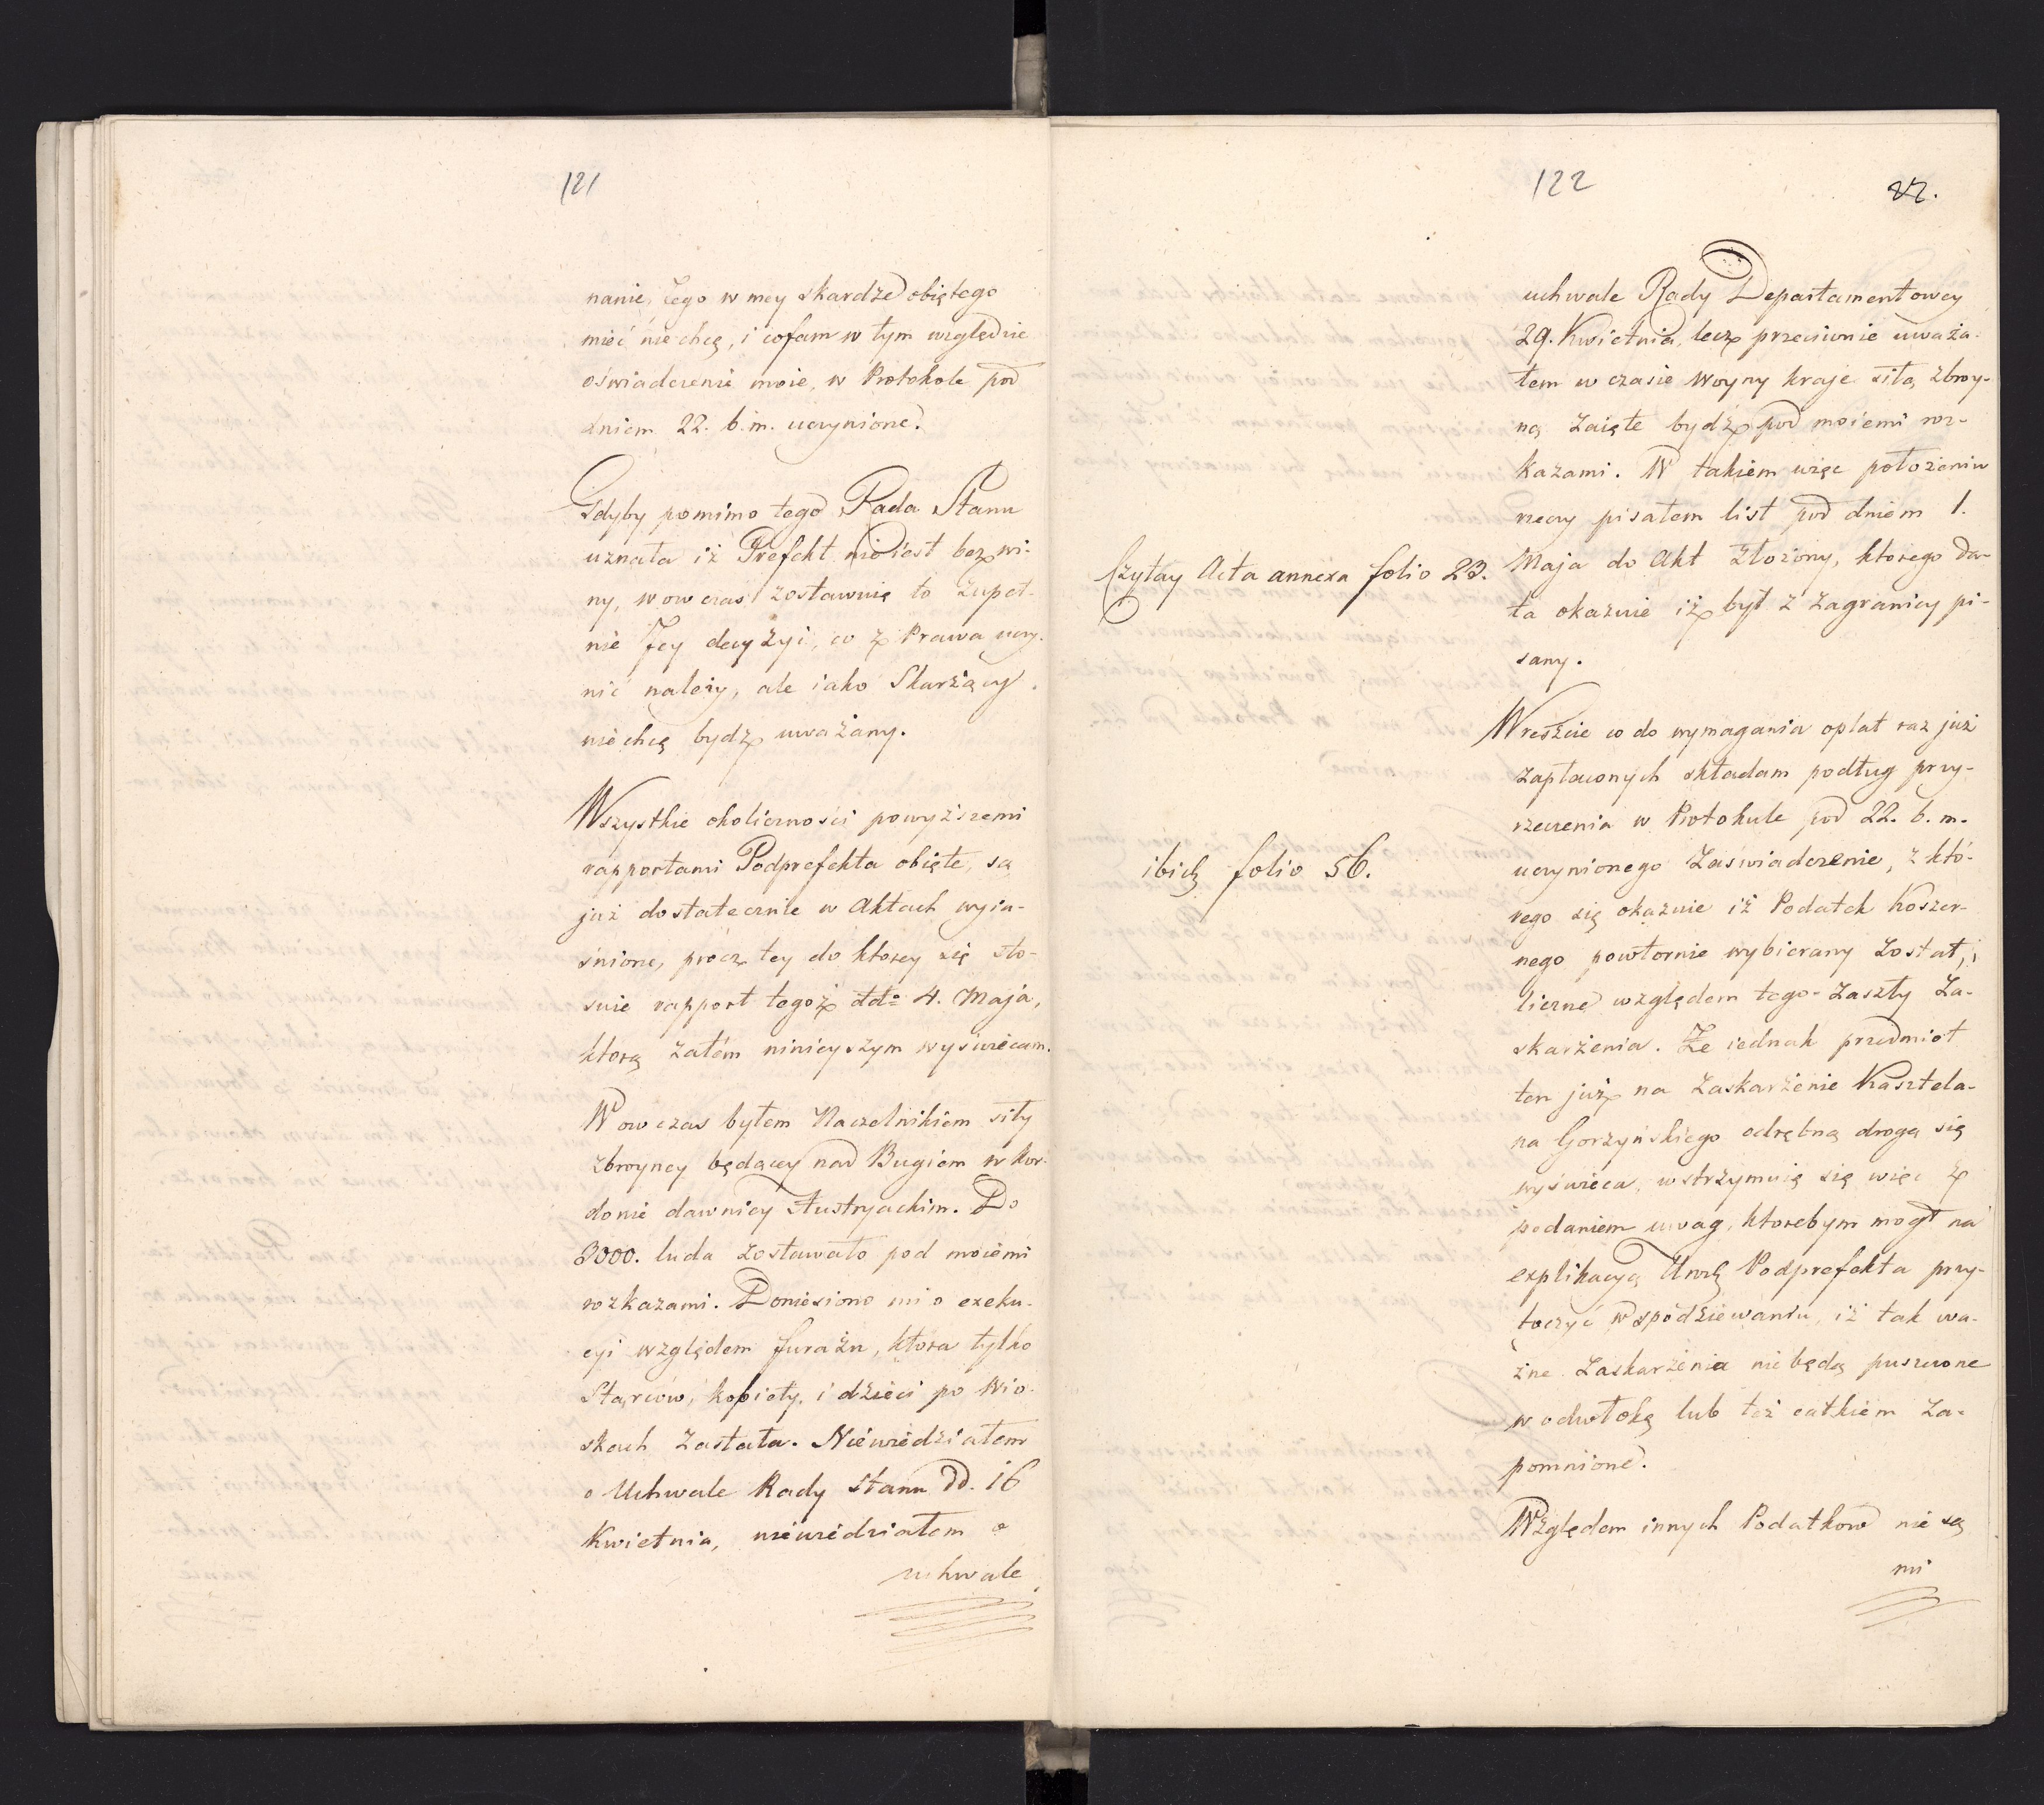 121
nanie, tego w mey skardze obiętego
mieć nie chcę, i cofam w tym względzie
oświadczenie moie, w Protokole pod
dniem 22. b. m. uczynione.
Gdyby pomimo tego Rada Stanu
uznała iż Prefekt nie iest bez wi-
ny, wowczas zostawuię to zupeł-
nie Jey decyzyi, co z Prawa uczy-
nić należy, ale iako Skarżący
nie chcę bydź uważany.
Wszystkie okoliczności powyższemi
rapportami Podprefekta obięte, są
już dostatecznie w Aktach wyia-
śnione, prócz tey do ktorey się sto-
suie rapport tegoż dto 4. Maja,
ktorą zatém ninieyszym wyświecam.
Wowczas byłem Naczelnikiem siły
zbroyney będącey nad Bugiem w kor-
donie dawniey Austryackim. Do
3000. luda zostawało pod moiemi
rozkazami. Doniesiono mi o exeku-
cyi względem furażu, ktora tylko
Starców, kobiety, i dzieci po wio-
skach zastała. Niewiedziałem
o Uchwale Rady Stanu dd. 16
Kwietnia, niewiedziałem o
uchwale
122
22.
uchwale Rady Departamentowey
29. Kwietnia, lecz przeciwnie uważa-
łem w czasie woyny kraje siłą zbroy-
ną zaięte bydź pod moiemi roz-
kazami. W takiem więc położeniu
rzeczy pisałem list pod dniem 1.
Czytay Acta annexa folio 23.
Maja do Akt złożony, ktorego da-
ta okazuie iż był z zagranicy pi-
sany.
Wreszcie co do wymagania opłat raz już
zapłaconych składam podług przy-
rzeczenia w Protokule pod 22. b. m.
ibid folio 56.
uczynionego Zaświadczenie, z któ-
rego się okazuie iż Podatek koszer-
nego powtornie wybierany został, i
liczne względem tego zaszły Za-
skarżenia. Że iednak przedmiot
ten już na zaskarżenie Kasztela-
na Gorzyńskiego odrębną drogą się
wyświeca, wstrzymuię się więc z
podaniem uwag, ktorebym mogł na
explikacyą Urod. Podprefekta przy-
toczyć w spodziewaniu, iż tak wa-
żne Zaskarżenia nie będą puszczone
w odwłokę lub też całkiem za-
pomnione.
Względem innych Podatkow nie są
mi